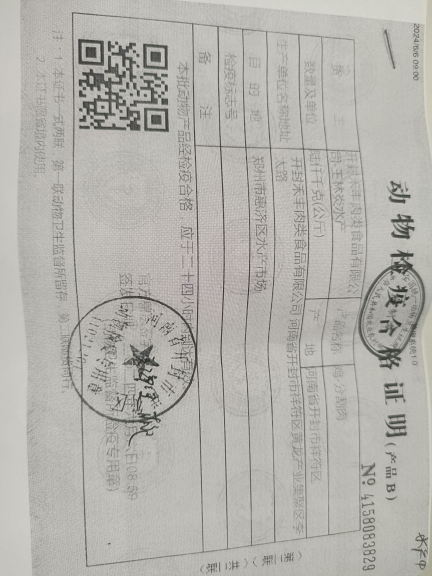 2024/6/6 09:00
动物检疫合格证明(产品B)
№ 4158083829
货主
开封禾丰肉类食品有限公
司,玉林炎水产
产品名称
鸡分割肉
数量及单位
陆仟千克(公斤)
产地
河南省开封市祥符区
生产单位名称地址
开封禾丰肉类食品有限公司 河南省开封市祥符区黄龙产业集聚区李
大路
目的地
郑州市惠济区水产市场
检疫标志号
备注
本批动物产品经检疫合格,应于二十四小时内到达有效。
官方兽医签字:
签发日期:
(动物卫生监督所检疫专用章)
注:1. 本证书一式两联,第一联动物卫生监督所留存,第二联随货同行。
2. 本证书限省境内使用。
(第二联)(共二联)